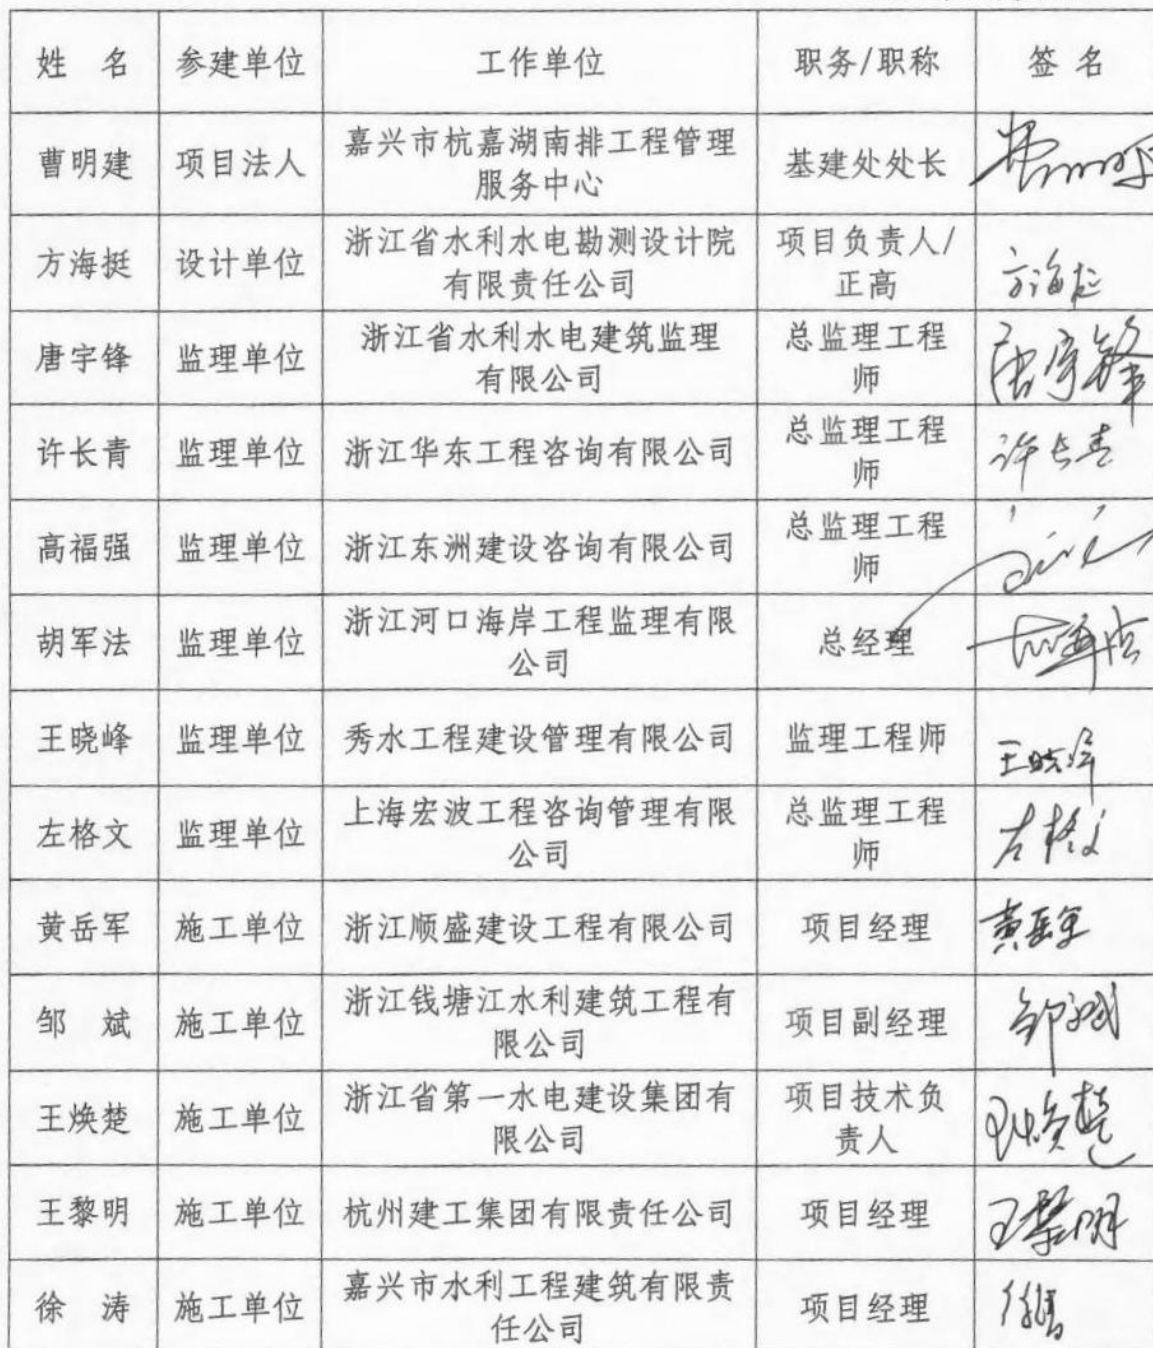 姓 名 参建单位 工作单位 职务/职称 签 名
曹明建 项目法人 嘉兴市杭嘉湖南排工程管理 基建处处长
服务中心
方海挺 设计单位 浙江省水利水电勘测设计院 项目负责人/ 方海挺
有限责任公司 正高
唐宇锋 监理单位 浙江省水利水电建筑监理 总监理工程 唐宇锋
有限公司 师
许长青 监理单位 浙江华东工程咨询有限公司 总监理工程 许长青
师
高福强 监理单位 浙江东洲建设咨询有限公司 总监理工程
师
胡军法 监理单位 浙江河口海岸工程监理有限 总经理
公司
王晓峰 监理单位 秀水工程建设管理有限公司 监理工程师 王晓峰
左格文 监理单位 上海宏波工程咨询管理有限 总监理工程 左格文
公司 师
黄岳军 施工单位 浙江顺盛建设工程有限公司 项目经理 黄岳军
邹 斌 施工单位 浙江钱塘江水利建筑工程有 项目副经理 邹斌
限公司
王焕楚 施工单位 浙江省第一水电建设集团有 项目技术负 王焕楚
限公司 责人
王黎明 施工单位 杭州建工集团有限责任公司 项目经理 王黎明
徐 涛 施工单位 嘉兴市水利工程建筑有限责 项目经理 徐涛
任公司